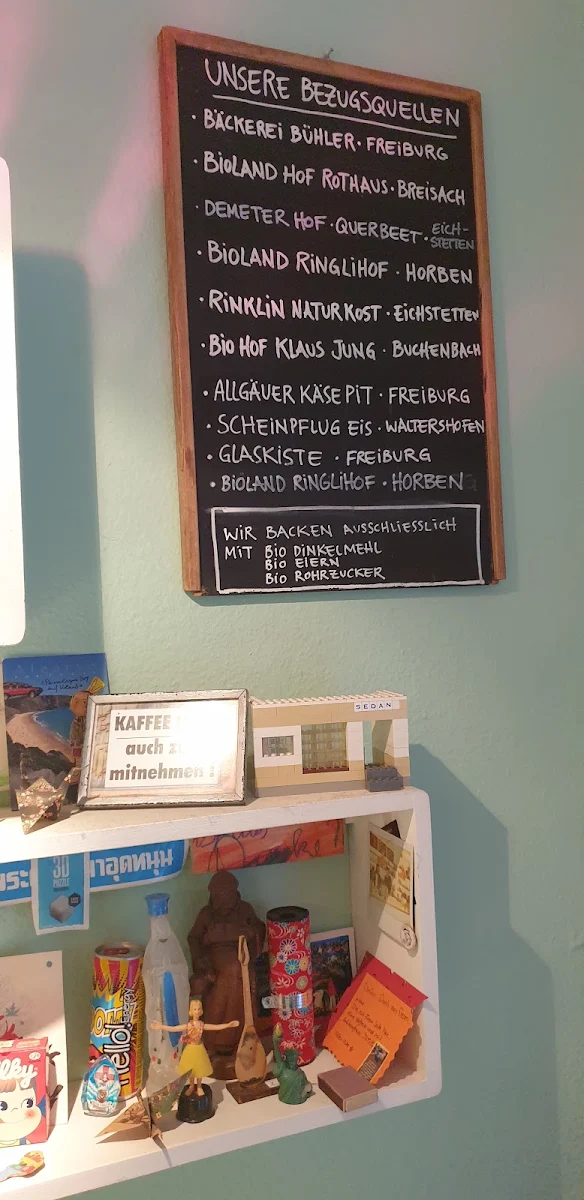 UNSERE BEZUGSQUELLEN
· BÄCKEREI BÜHLER · FREIBURG
· BIOLAND HOF ROTHAUS · BREISACH
· DEMETER HOF · QUERBEET · EICH-
STETTEN
· BIOLAND RINGLIHOF · HORBEN
· RINKLIN NATURKOST · EICHSTETTEN
· BIO HOF KLAUS JUNG · BUCHENBACH
· ALLGÄUER KÄSE PIT · FREIBURG
· SCHEINPFLUG EIS · WALTERSHOFEN
· GLASKISTE · FREIBURG
· BIOLAND RINGLIHOF · HORBEN
WIR BACKEN AUSSCHLIESSLICH
MIT BIO DINKELMEHL
BIO EIERN
BIO ROHRZUCKER
KAFFEE
auch
mitnehmen !
SEDAN
3D
PUZZLE
าอุดหนุน
hello!